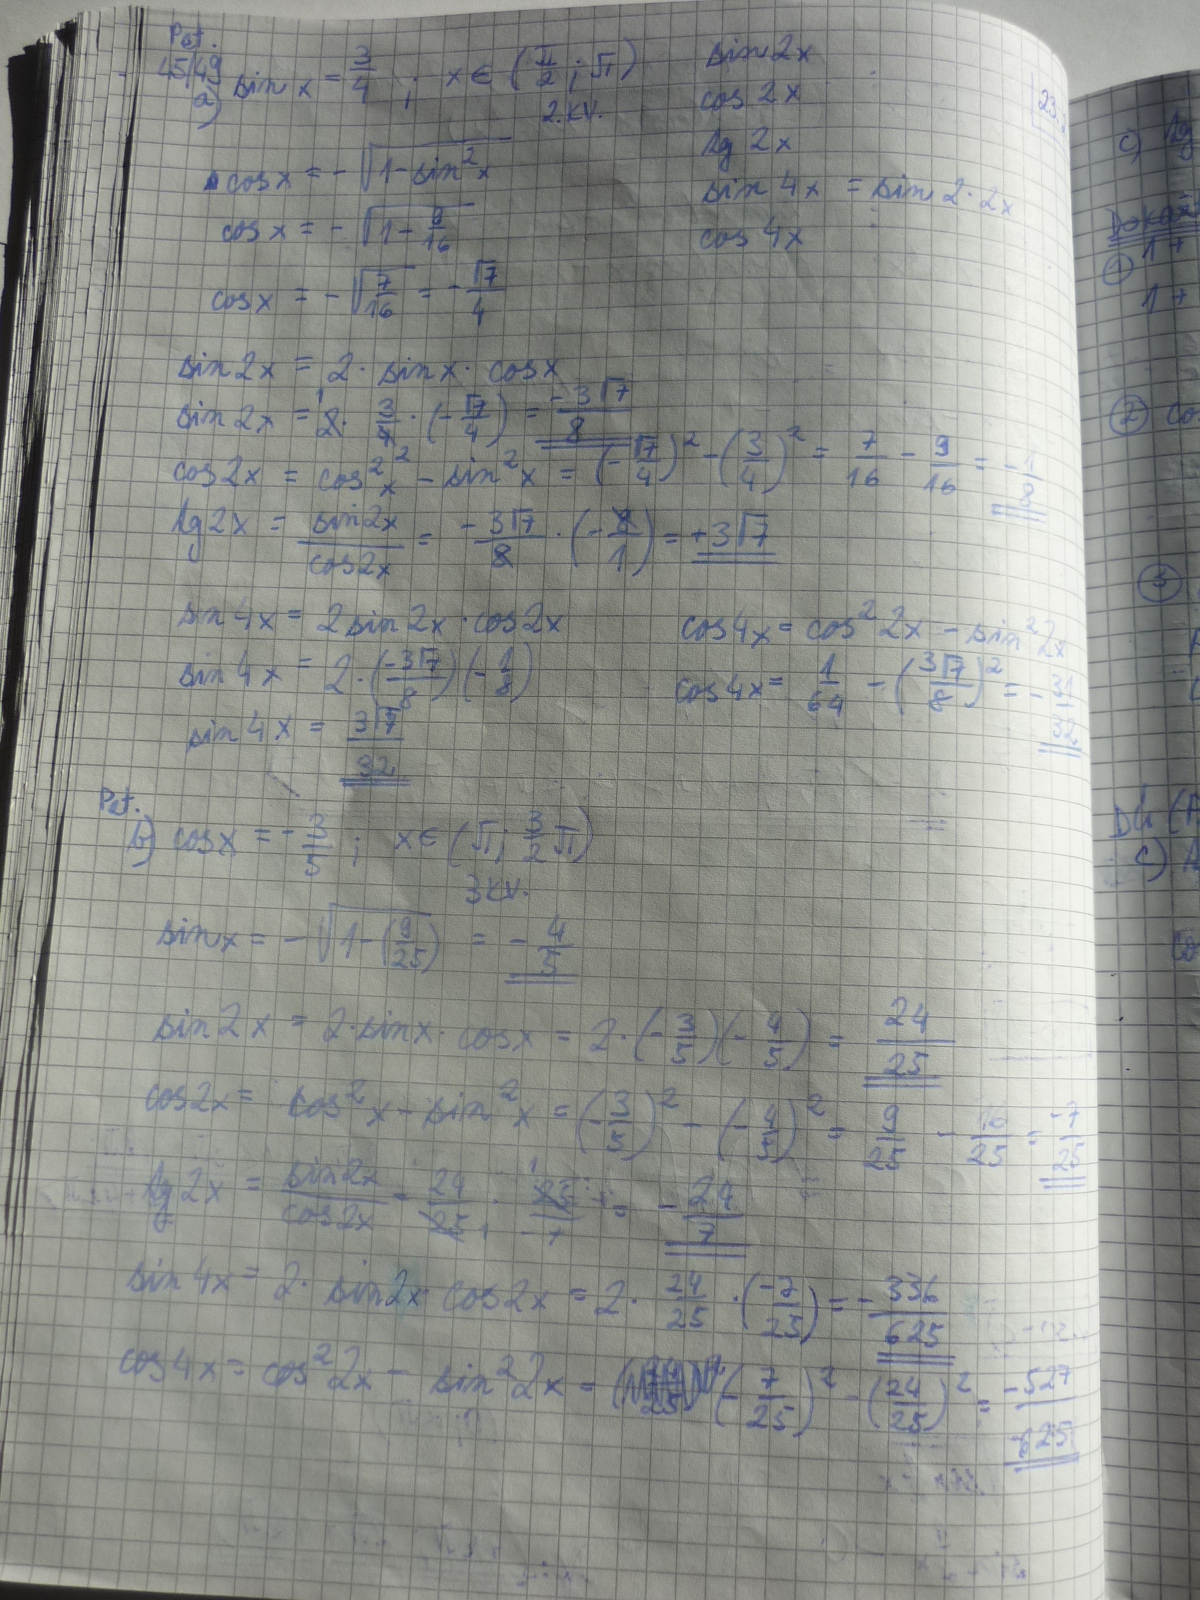 Pet.
45/49
a) sin x = 3/4 ; x ∈ (π/2 ; π)
2.kv.
sin 2x
cos 2x
tg 2x
sin 4x = sin 2·2x
cos 4x
cos x = -√(1-sin²x)
cos x = -√(1-9/16)
cos x = -√(7/16) = -√7/4
sin 2x = 2· sin x· cos x
sin 2x = 2· 3/4 ·(-√7/4) = -3√7/8
cos 2x = cos²x - sin²x = (-√7/4)² - (3/4)² = 7/16 - 9/16 = -1/8
tg 2x = sin 2x/cos 2x = -3√7/8 · (-8/1) = +3√7
sin 4x = 2 sin 2x · cos 2x
sin 4x = 2·(-3√7/8)(-1/8)
sin 4x = 3√7/32
cos 4x = cos² 2x - sin² 2x
cos 4x = 1/64 - (3√7/8)² = -31/32
Pet.
b) cos x = -3/5 ; x ∈ (π; 3/2 π)
3 kv.
sin x = -√(1-(9/25)) = -4/5
sin 2x = 2· sin x· cos x = 2·(-3/5)(-4/5) = 24/25
cos 2x = cos²x - sin²x = (-3/5)² - (-4/5)² = 9/25 - 16/25 = -7/25
tg 2x = sin 2x/cos 2x = 24/25 · 25/-7 = -24/7
sin 4x = 2· sin 2x cos 2x = 2· 24/25 ·(-7/25) = -336/625
cos 4x = cos² 2x - sin² 2x = (-7/25)² - (24/25)² = -527/625
c) tg
1 +
1 +
2
3
c)